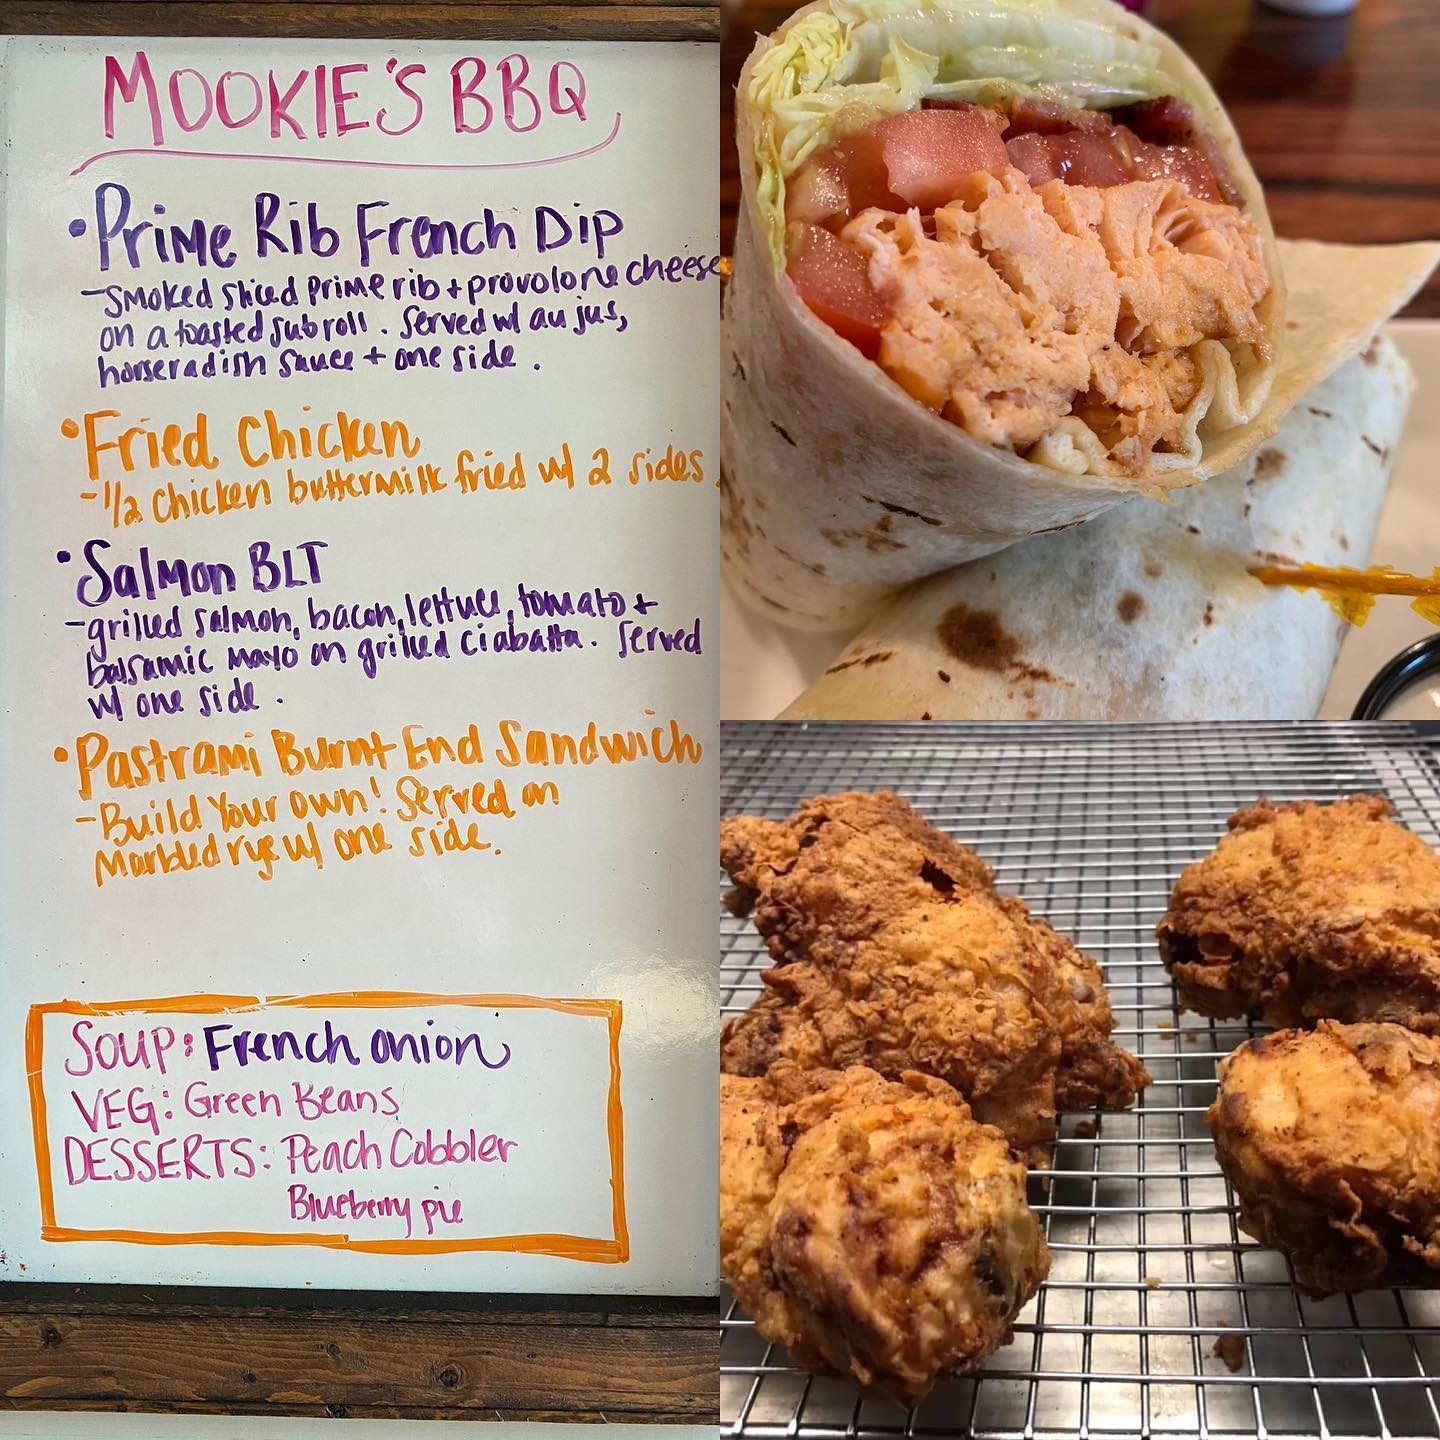 MOOKIE'S BBQ
• Prime Rib French Dip
- Smoked sliced prime rib + provolone cheese
on a toasted sub roll. Served w/ au jus,
horseradish sauce + one side.
• Fried Chicken
- 1/2 chicken buttermilk fried w/ 2 sides.
• Salmon BLT
- grilled salmon, bacon, lettuce, tomato +
balsamic mayo on grilled ciabatta. Served
w/ one side.
• Pastrami Burnt End Sandwich
- Build Your own! Served on
Marbled rye w/ one side.
SOUP: French onion
VEG: Green Beans
DESSERTS: Peach Cobbler
Blueberry pie